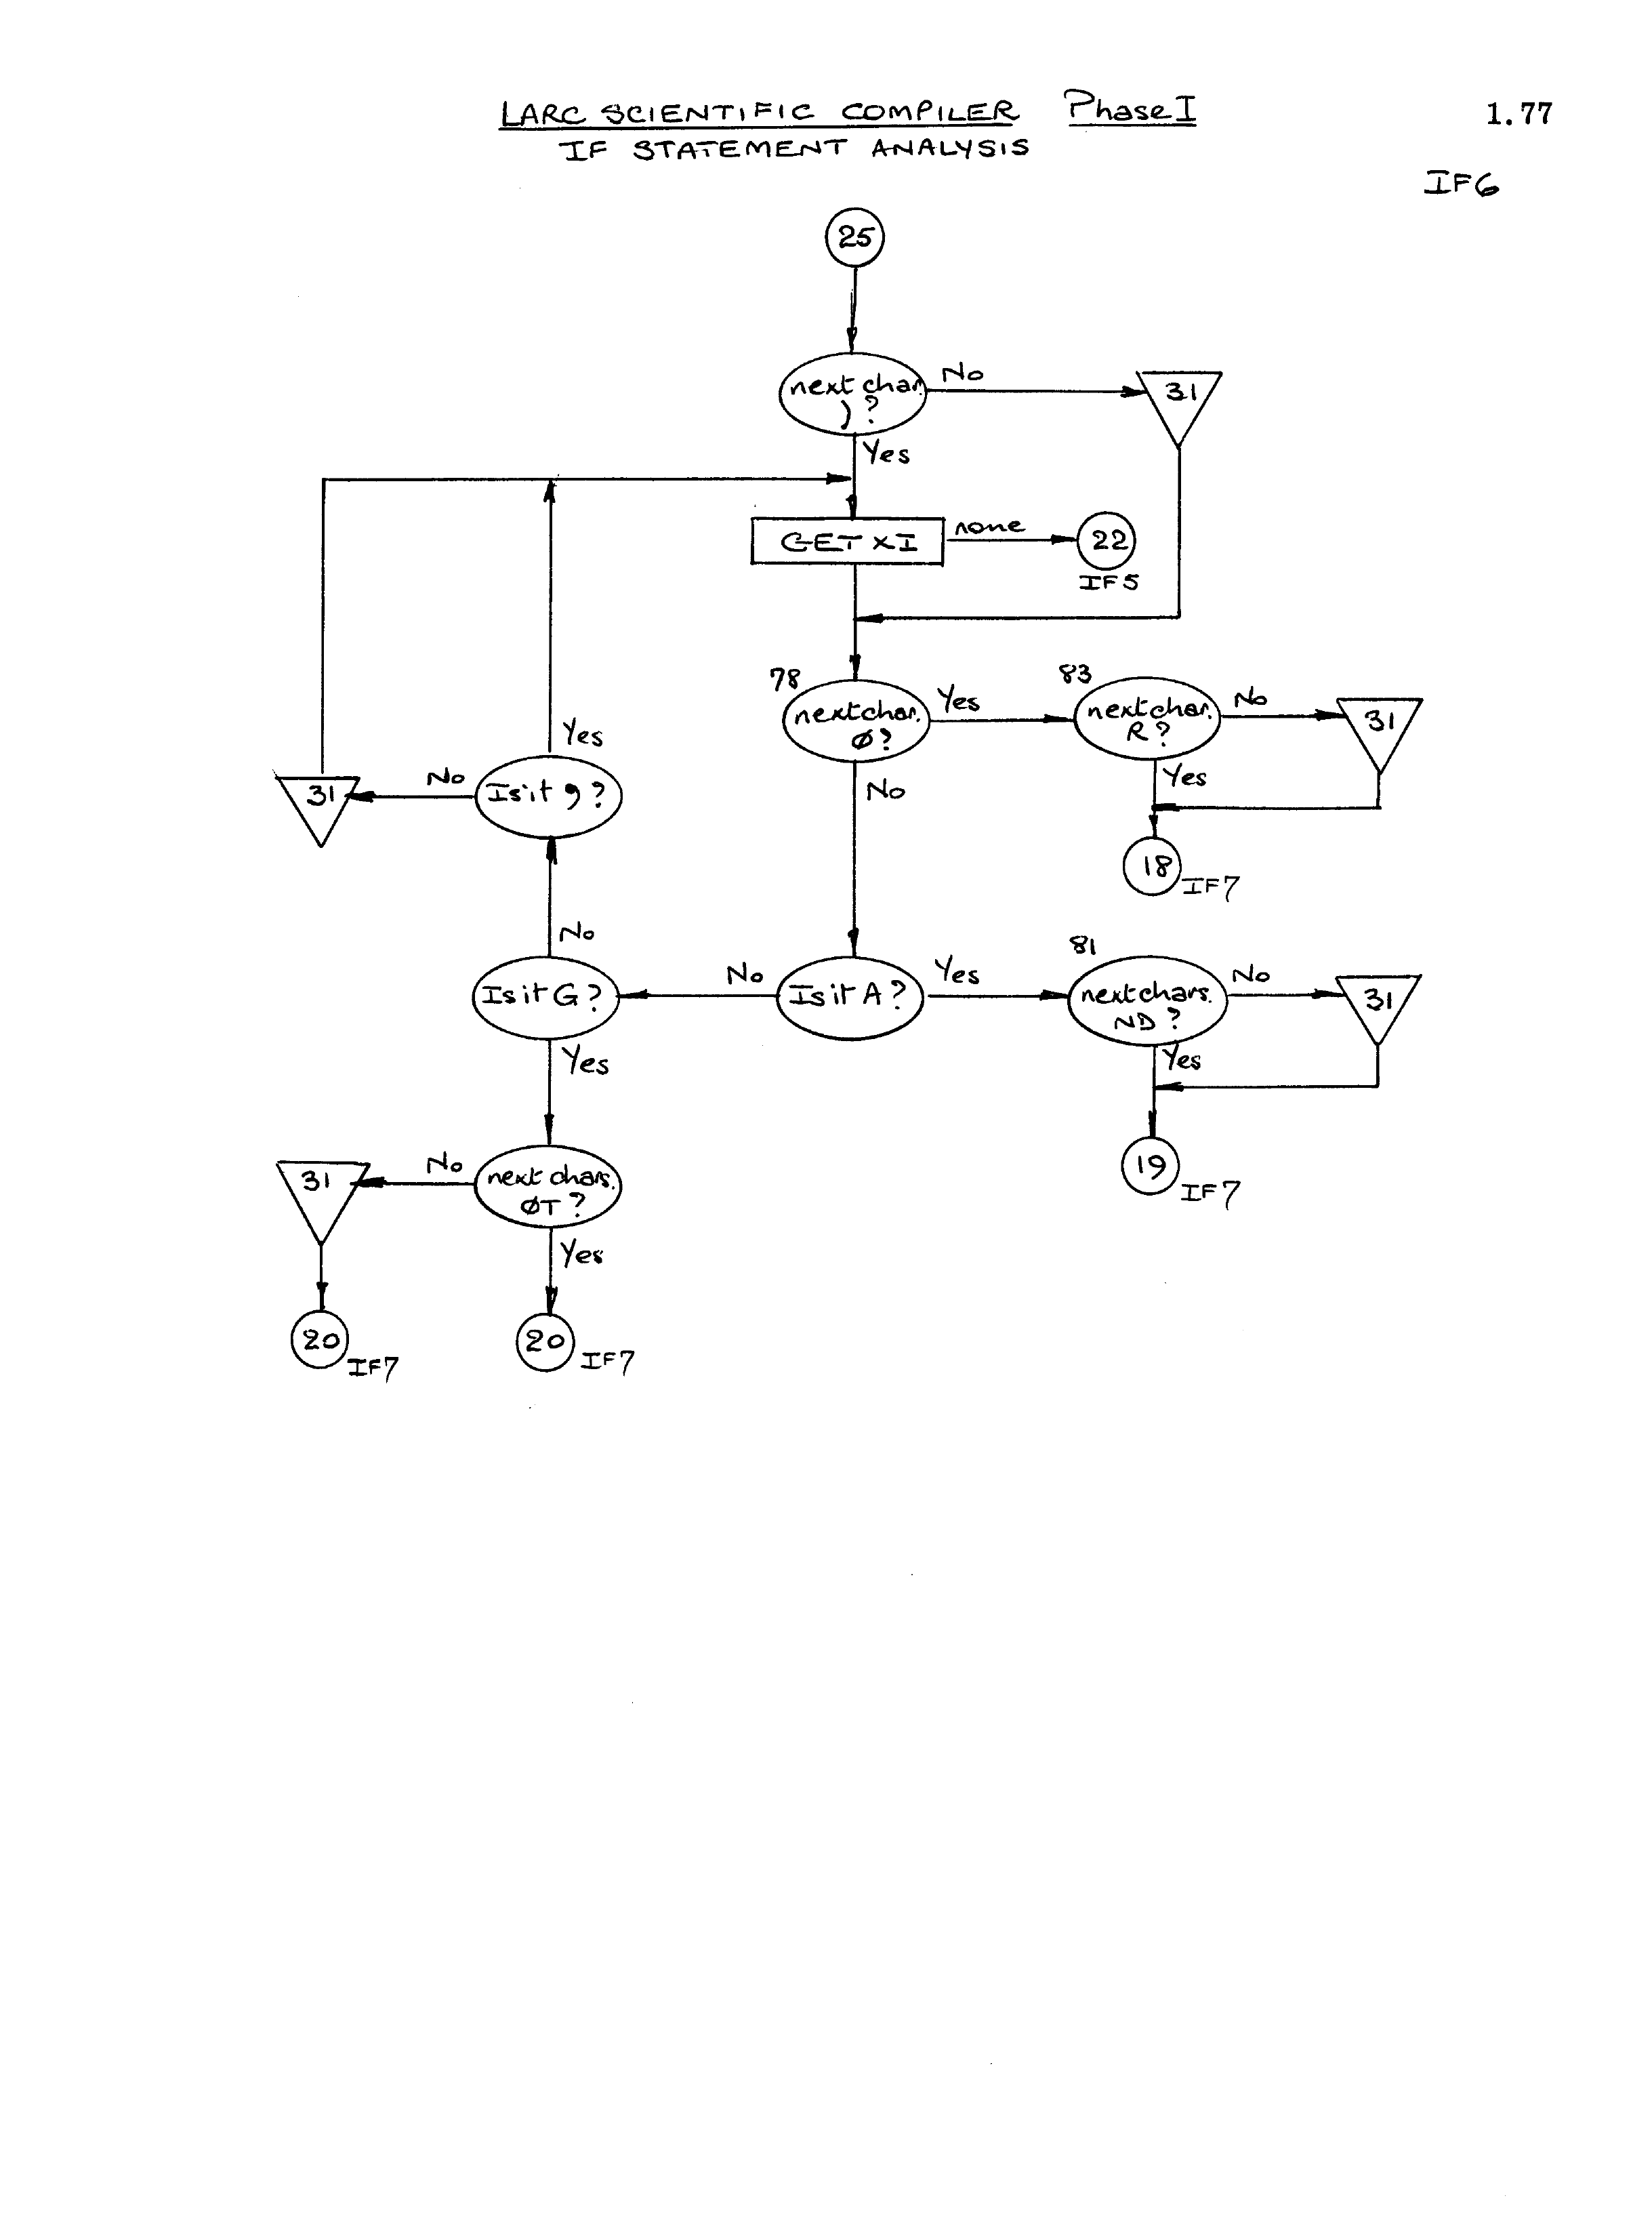 LARC SCIENTIFIC COMPILER Phase I
1.77
IF STATEMENT ANALYSIS
IF6
25
next char.
) ?
No
31
Yes
GET XI
none
22
IF5
78
next char.
Ø?
Yes
83
next char.
R?
No
31
Yes
18
IF7
No
Yes
Is it , ?
No
31
No
Is it G?
No
Is it A?
Yes
81
next chars.
ND ?
No
31
Yes
19
IF7
Yes
next chars.
ØT ?
No
31
Yes
20
IF7
20
IF7